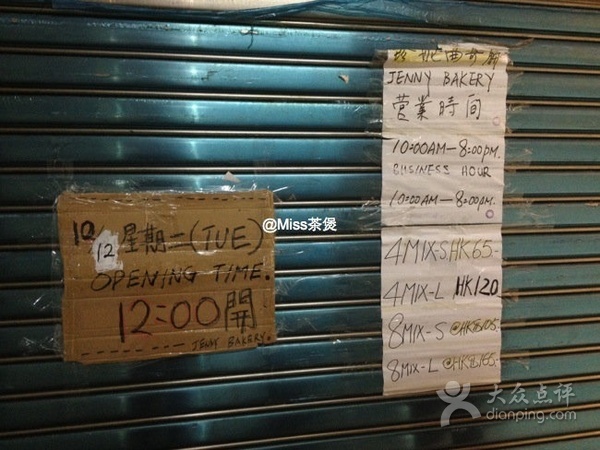 10
12 星期二(TUE)
OPENING TIME.
12:00 開
JENNY BAKERY.
@Miss茶煲
珍妮曲奇
JENNY BAKERY
营業時间
10:00AM—8:00PM.
BUSINESS HOUR
10:00AM—8:00PM.
4MIX-S HK65-
4MIX-L HK120
8MIX-S @HK$105-
8MIX-L @HK$165-
大众点评
dianping.com